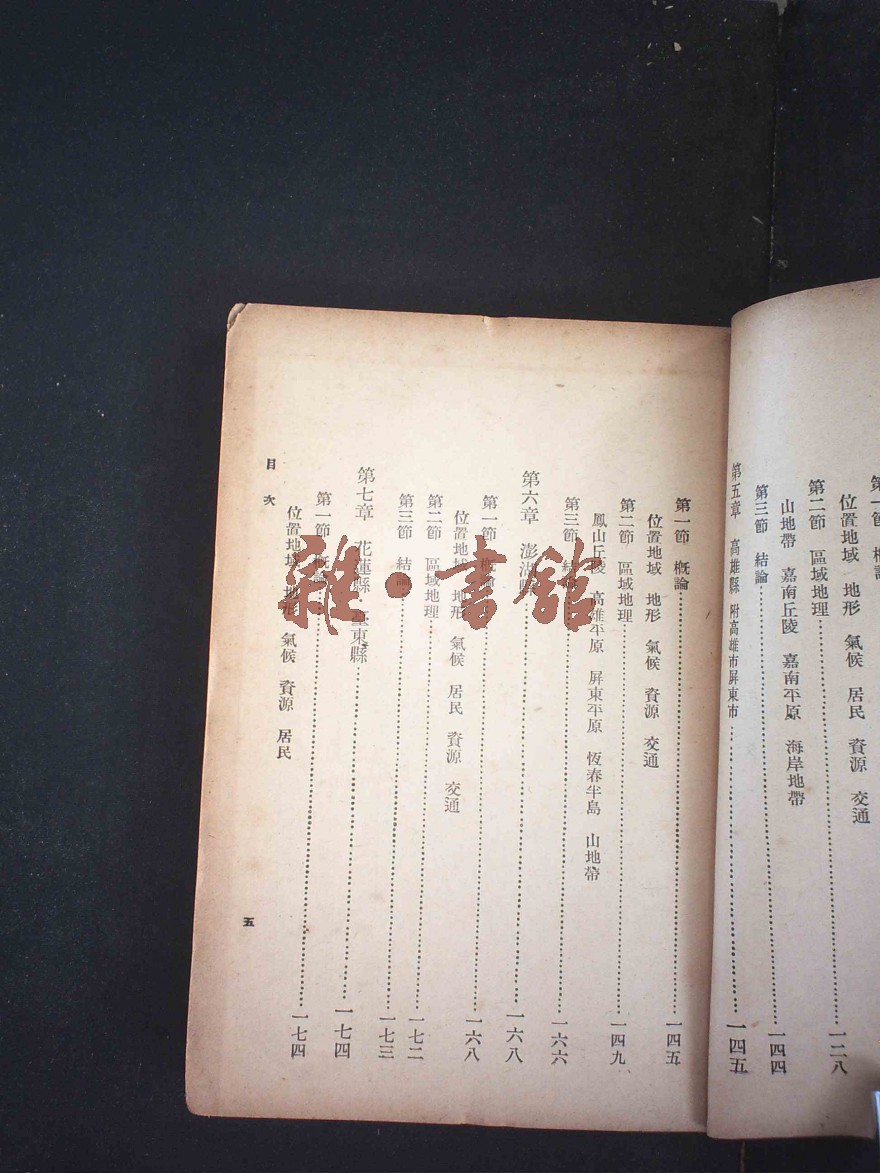 位置地域 地形 氣候 居民 資源 交通
第二節 區域地理……一二八
山地帶 嘉南丘陵 嘉南平原 海岸地帶
第三節 結論……一四四
第五章 高雄縣 附高雄市屏東市……一四五
第一節 概論……一四五
位置地域 地形 氣候 資源 交通
第二節 區域地理……一四九
鳳山丘陵 高雄平原 屏東平原 恆春半島 山地帶
第三節 結論……一六六
第六章 澎湖縣……一六八
第一節 概論……一六八
位置地域 地形 氣候 居民 資源 交通
第二節 區域地理……一七二
第三節 結論……一七三
第七章 花蓮縣·臺東縣……一七四
第一節 概論……一七四
位置地域 地形 氣候 資源 居民
目次
五
雜·書館